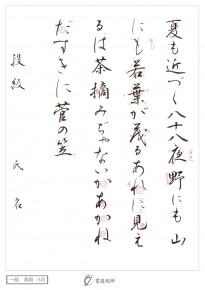 夏も近づく八十八夜野にも山
にも若葉が茂るあれに見え
るは茶摘みぢゃないかあかね
だすきに菅の笠
段級 氏名